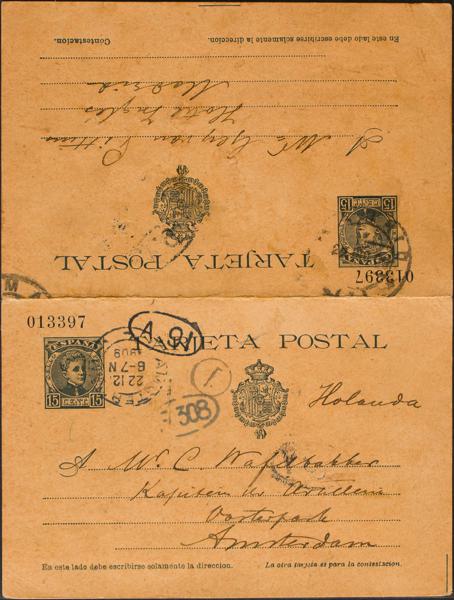 Contestacion.
En este lado debe escribirse solamente la direccion.
Madrid
Hotel Inglés
A Mr
TARJETA POSTAL
15 CENTs 15
013397
MA
013397
TARJETA POSTAL
ESPAÑA
15 CENTs 15
A 91
22 12
1909
6-7 N
1
308
Holanda
A Mr C
Kapitein der Artillerie
Oosterpark
Amsterdam
En este lado debe escribirse solamente la direccion.
La otra tarjeta es para la contestacion.